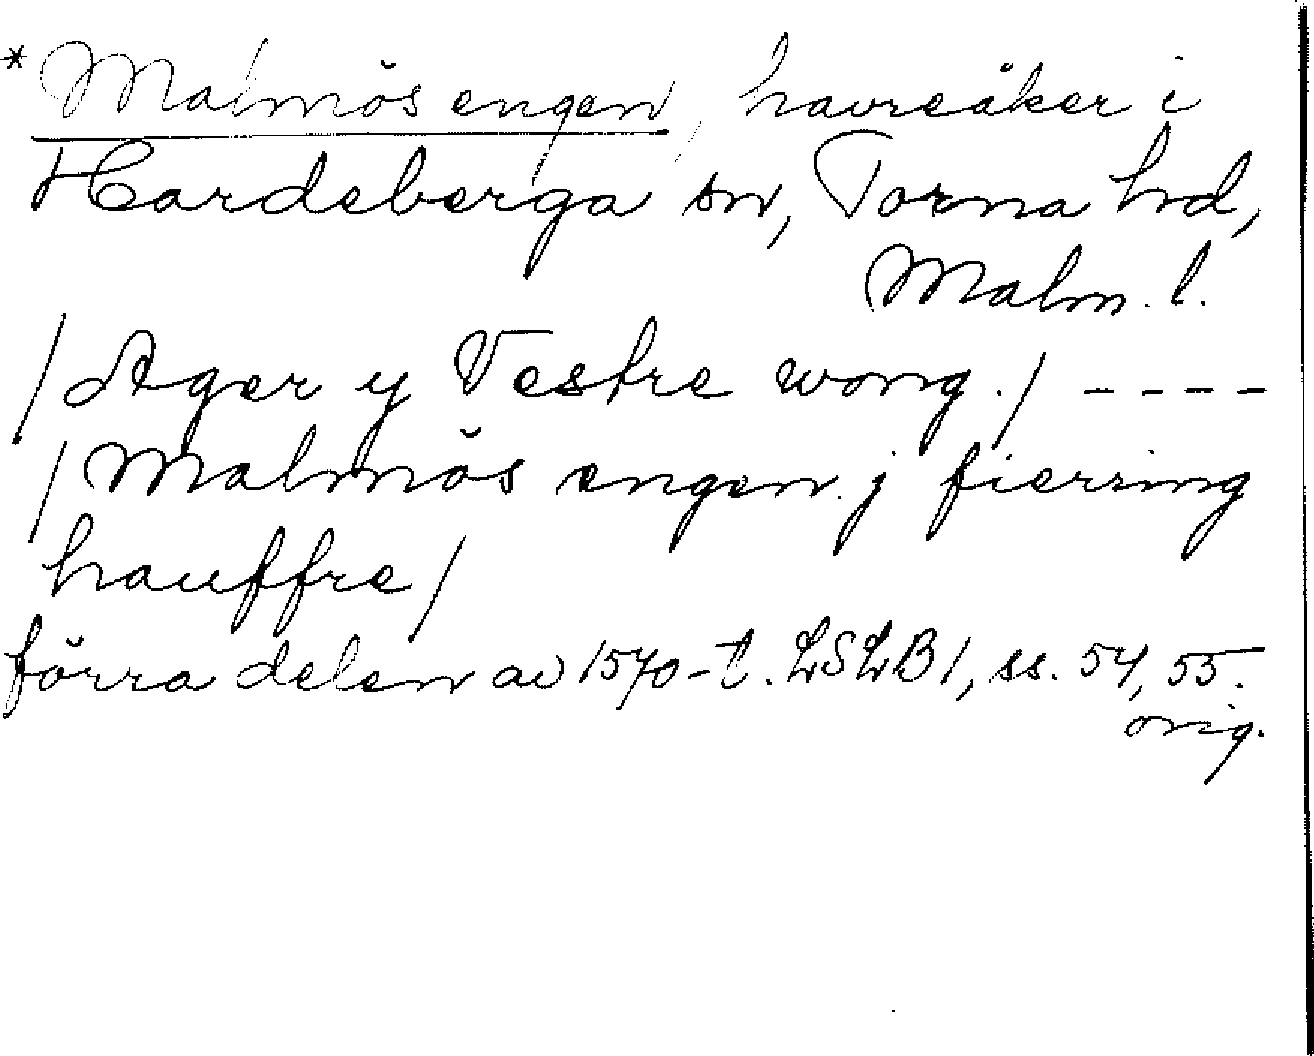 *Malmös engen, havreåker i
Hardeberga sn, Torna hd,
Malm. l.
/Ager y Vestre wong./ - - - -
/Malmös engen. j fierring
hauffre/
förra delen av 1570-t. LSLB1, ss. 54, 55.
orig.